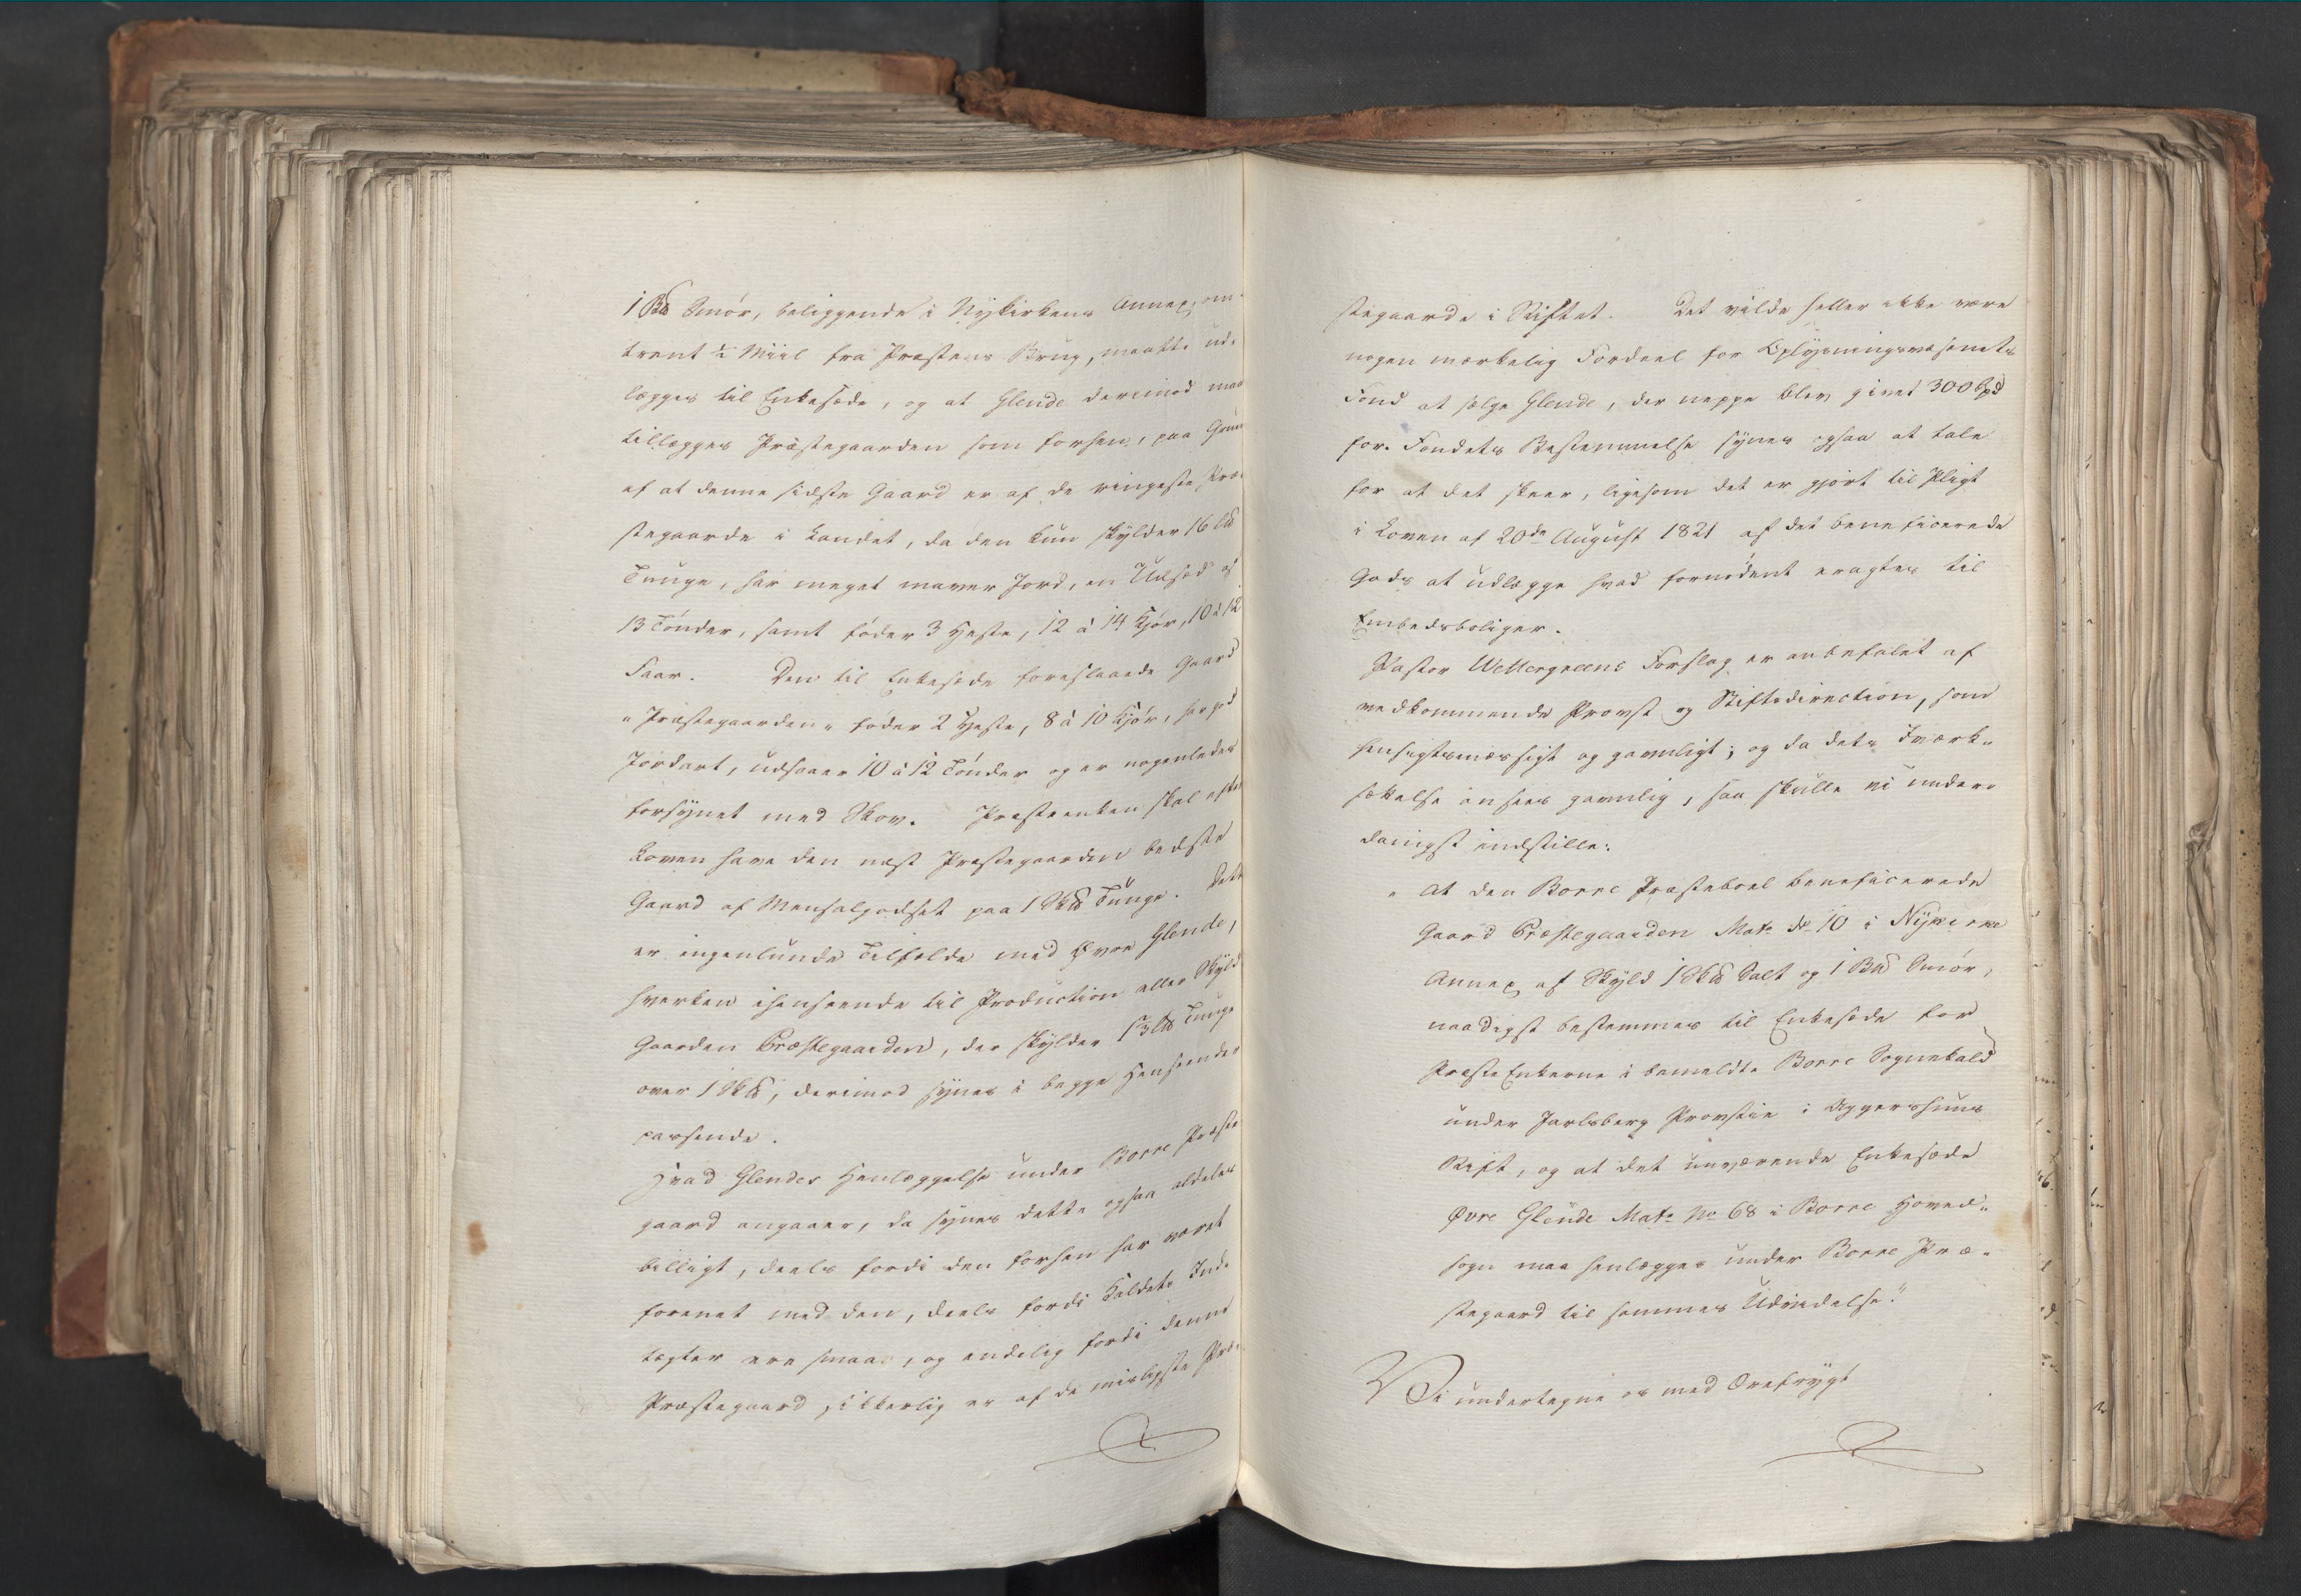 1 B℔ Smör, beliggende i Nykirkens Annex, om-
trent ½ Miil fra Præstens Brug, maatte ud-
lægges til Enkesæde, og at Glende derimod maa
tillægges Præstegaarden som forhen, paa Grund
af at denne sidste Gaard er af de ringeste Præ-
stegaarde i Landet, da den kun skylder 16 L℔
Tunge, har meget maver Jord, en Udsæd af
13 Tönder, samt föder 3 Heste, 12 à 14 Kjör, 10 à 12
Faar. Den til Enkesæde foreslaaede Gaard
"Præstegaarden" föder 2 Heste, 8 à 10 Kjör, har god
Jordart, udsaaer 10 à 12 Tönder og er nogenledes
forsynet med Skov. Præsteenken skal efter
Loven have den næst Præstegaarden bedste
Gaard af Mensalgodset paa 1 Sk℔ Tunge. Dette
er ingenlunde Tilfælde med Øvre Glende,
hverken ihenseende til Production eller Skyld
Gaarden Præstegaarden, der skylder 1⅓ L℔ Tunge
over 1 Sk℔, derimod synes i begge Henseender
passende.
Hvad Glendes Henlæggelse under Borre Præste
gaard angaaer, da synes dette ogsaa aldeles
billigt, deels fordi den forhen har været
forenet med den, deels fordi Kaldets Ind-
tægter ere smaae, og endelig fordi denne
Præstegaard sikkerlig er af de misligste Præ-
stegaarde i Stiftet. Det vilde heller ikke være
nogen mærkelig Fordeel for Oplysningsvæsenets
Fond at sælge Glende, der neppe blev givet 300 Spd
for. Fondets Bestemmelse synes ogsaa at tale
for at det skeer, ligesom det er gjort til Pligt
i Loven af 20de August 1821 af det beneficerede
Gods at udlægge hvad fornödent eragtes til
Embedsboliger.
Pastor Wettergreens Forslag er anbefalet af
vedkommende Provst og Stiftsdirection, som
hensigtsmæssigt og gavnligt; og da dets Iværk-
sættelse ansees gavnlig, saa skulle vi under-
danigst indstille:
"At den Borre Præsteboel beneficerede
Gaard Præstegaarden Matr No 10 i Nykirke
Annex af Skyld 1 Sk℔ Salt og 1 B℔ Smör,
naadigst bestemmes til Enkesæde for
Præste Enkerne i bemeldte Borre Sognekald
under Jarlsberg Provstie i Aggershuus
Stift, og at det nuværende Enkesæde
Øvre Glende Matr No 68 i Borre Hoved-
sogn maa henlægges under Borre Præ-
stegaard til sammes Udvidelse."
Vi undertegne os med Ærefrygt